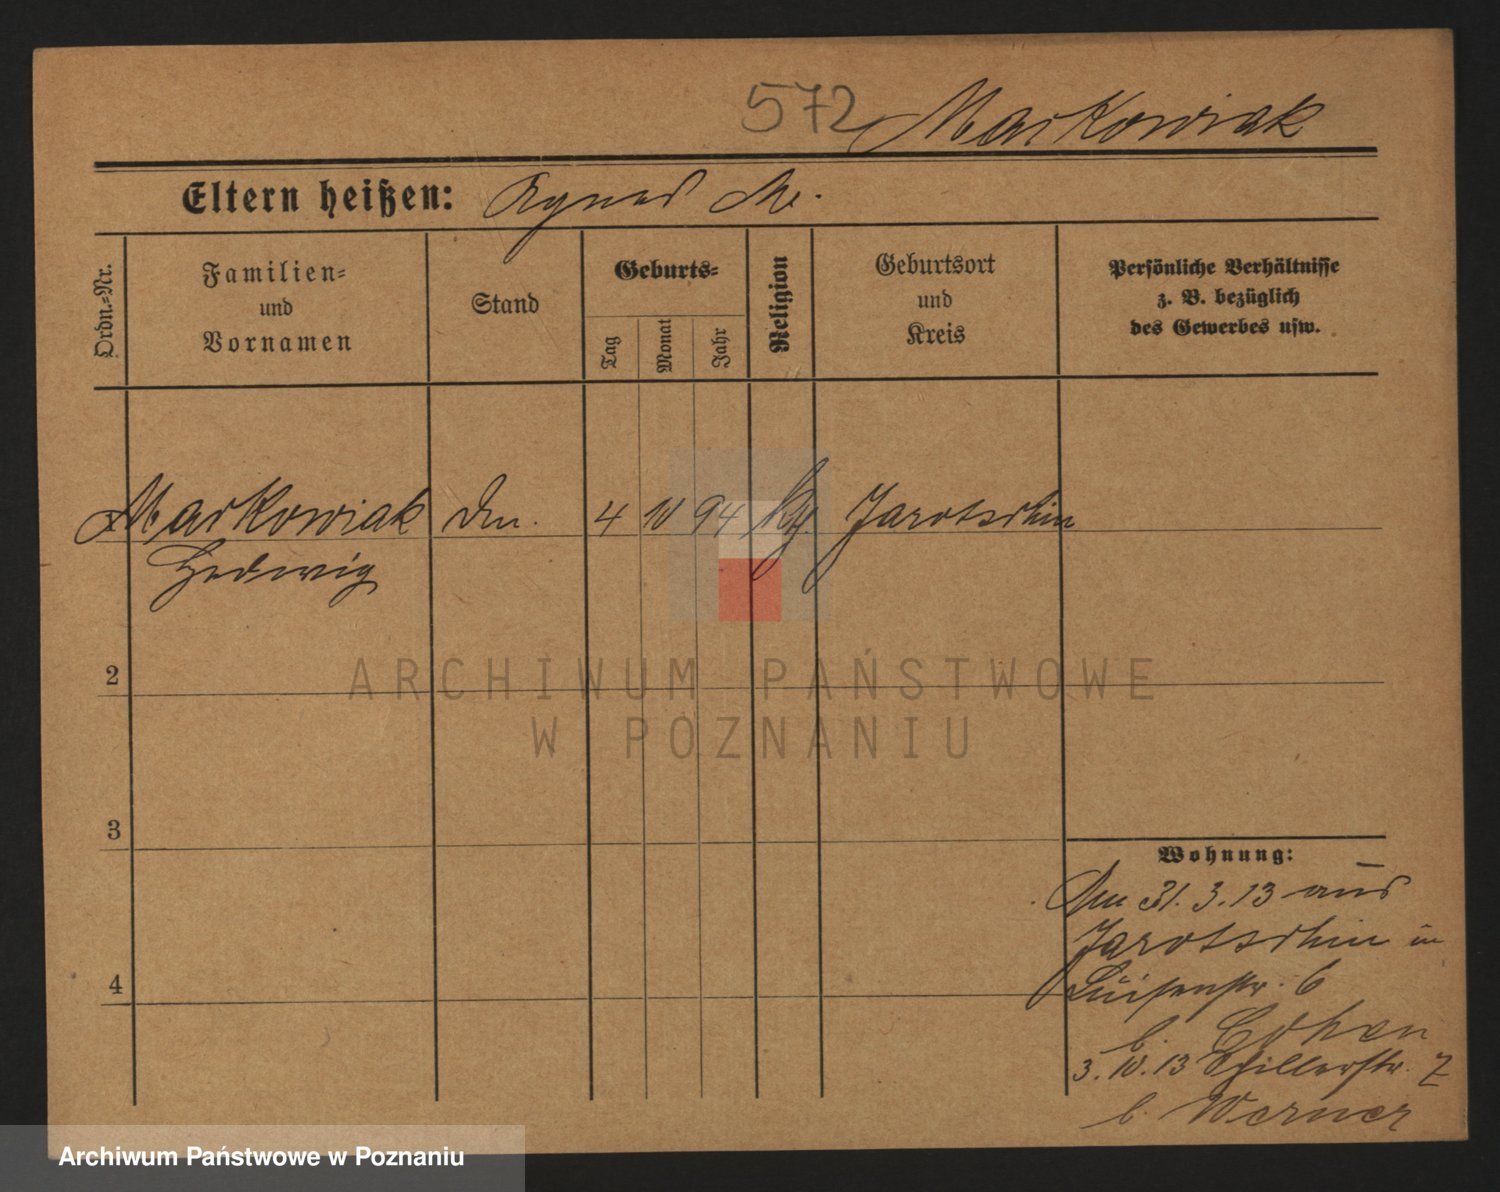 572 Markowiak
Eltern heißen: Agnes M.
Ordn.-Nr.
Familien-
und
Vornamen
Stand
Geburts-
Tag
Monat
Jahr
Religion
Geburtsort
und
Kreis
Persönliche Verhältnisse
z. B. bezüglich
des Gewerbes usw.
Markowiak 4 10 94 Jarotschin
Hedwig
2
3
4
Wohnung:
31. 3. 13 aus
Jarotschin in
Luisenstr. 6
b. Cohen
3. 10. 13 Schillerstr. 7
b. Werner
ARCHIWUM PAŃSTWOWE
W POZNANIU
Archiwum Państwowe w Poznaniu